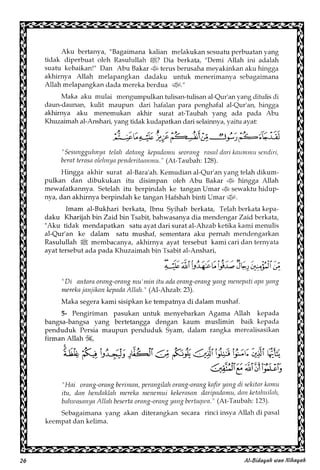 Aku bertanya, "Bagaimana kalian melakukan sesuatu perbuatan yang
tidak diperbuat oleh Rasulullah ﷺ? Dia berkata, "Demi Allah ini adalah
suatu kebaikan!" Dan Abu Bakar terus berusaha meyakinkan aku hingga
akhirnya Allah melapangkan dadaku untuk menerimanya sebagaimana
Allah melapangkan dada mereka berdua ."
Maka aku mulai mengumpulkan tulisan-tulisan al-Qur'an yang ditulis di
daun-daunan, kulit maupun dari hafalan para penghafal al-Qur'an, hingga
akhirnya aku menemukan akhir surat at-Taubah yang ada pada Abu
Khuzaimah al-Anshari, yang tidak kudapatkan dari selainnya, yaitu ayat:
"Sesungguhnya telah datang kepadamu seorang rasul dari kaummu sendiri,
berat terasa olehnya penderitaanmu." (At-Taubah: 128).
Hingga akhir surat al-Bara'ah. Kemudian al-Qur'an yang telah dikum-
pulkan dan dibukukan itu disimpan oleh Abu Bakar hingga Allah
mewafatkannya. Setelah itu berpindah ke tangan Umar sewaktu hidup-
nya, dan akhirnya berpindah ke tangan Hafshah binti Umar .
Imam al-Bukhari berkata, Ibnu Syihab berkata, Telah berkata kepa-
daku Kharijah bin Zaid bin Tsabit, bahwasanya dia mendengar Zaid berkata,
"Aku tidak mendapatkan satu ayat dari surat al-Ahzab ketika kami menulis
al-Qur'an ke dalam satu mushaf, sementara aku pernah mendengarkan
Rasulullah ﷺ membacanya, akhirnya ayat tersebut kami cari dan ternyata
ayat tersebut ada pada Khuzaimah bin Tsabit al-Anshari,
"Di antara orang-orang mu'min itu ada orang-orang yang menepati apa yang
mereka janjikan kepada Allah." (Al-Ahzab: 23).
Maka segera kami sisipkan ke tempatnya di dalam mushaf.
5- Pengiriman pasukan untuk menyebarkan Agama Allah kepada
bangsa-bangsa yang bertetangga dengan kaum muslimin baik kepada
penduduk Persia maupun penduduk Syam, dalam rangka merealisasikan
firman Allah ,
"Hai orang-orang beriman, perangilah orang-orang kafir yang di sekitar kamu
itu, dan hendaklah mereka menemui kekerasan daripadamu, dan ketahuilah,
bahwasanya Allah beserta orang-orang yang bertaqwa." (At-Taubah: 123).
Sebagaimana yang akan diterangkan secara rinci insya Allah di pasal
keempat dan kelima.
26
Al-Bidayah wan Nihayah